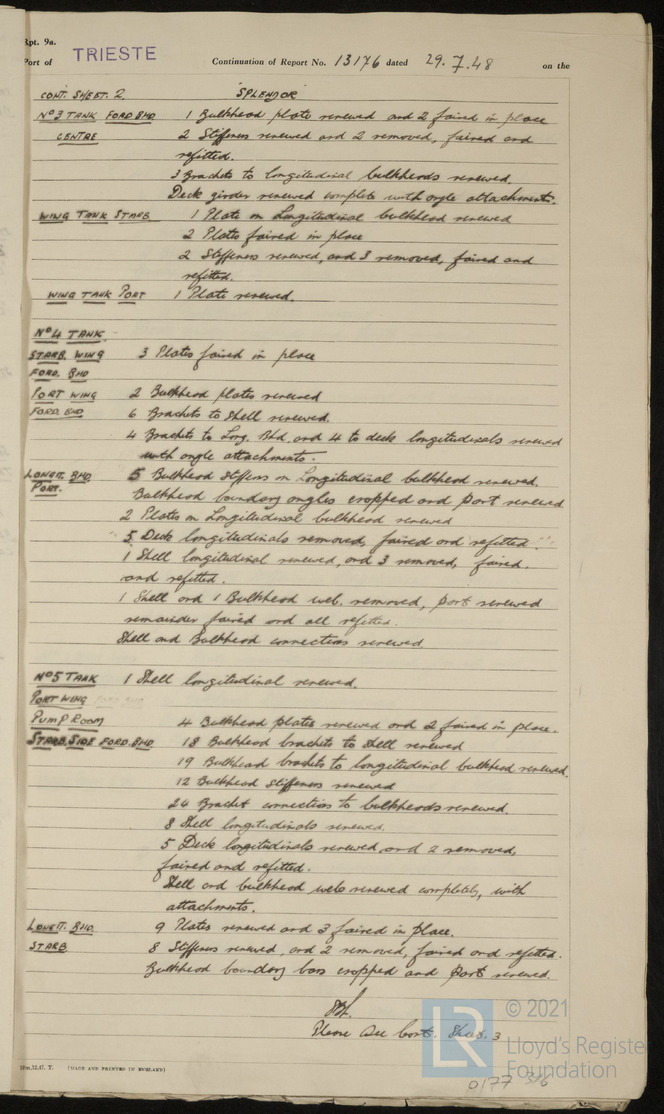 Rpt. 9a.
Port of TRIESTE Continuation of Report No. 13176 dated 29.7.48 on the
CONT. SHEET. 2. "SPLENDOR"
Nº3 TANK FORD BHD 1 Bulkhead plate renewed and 2 faired in place
CENTRE 2 Stiffeners renewed and 2 removed, faired and
refitted.
3 Brackets to longitudinal bulkheads renewed.
Deck girder renewed complete with angle attachments.
WING TANK STARB 1 Plate on Longitudinal bulkhead renewed
2 Plates faired in place
2 Stiffeners renewed, and 3 removed, faired and
refitted.
WING TANK PORT 1 Plate renewed.
Nº4 TANK
STARB. WING 3 Plates faired in place
FORD. BHD
PORT WING 2 Bulkhead plates renewed
FORD. BHD 6 Brackets to Shell renewed.
4 Brackets to Long. Bhd. and 4 to deck longitudinals renewed
with angle attachments.
LONGIT. BHD. 5 Bulkhead Stiffeners on Longitudinal bulkhead renewed.
PORT. Bulkhead boundary angles cropped and part renewed
2 Plates on Longitudinal bulkhead renewed
5 Deck longitudinals removed, faired and refitted.
1 Shell longitudinal renewed, and 3 removed, faired.
and refitted.
1 Shell and 1 Bulkhead web. removed, part renewed
remainder faired and all refitted.
Shell and Bulkhead connections renewed.
Nº5 TANK 1 Shell longitudinal renewed.
PORT WING FORD BHD
PUMP ROOM 4 Bulkhead plates renewed and 2 faired in place.
STARB. SIDE FORD. BHD 18 Bulkhead brackets to Shell renewed
19 Bulkhead brackets to longitudinal bulkhead renewed.
12 Bulkhead Stiffeners renewed
24 Bracket connections to bulkheads renewed.
8 Shell longitudinals renewed.
5 Deck longitudinals renewed and 2 removed,
faired and refitted.
Shell and bulkhead webs renewed completely, with
attachments.
LONGIT. BHD. 9 Plates renewed and 3 faired in place.
STARB. 8 Stiffeners renewed, and 2 removed, faired and refitted.
Bulkhead boundary bars cropped and part renewed.
Please See Cont. Sheet. 3
(MADE AND PRINTED IN ENGLAND)
© 2021
LR
Lloyd's Register
Foundation